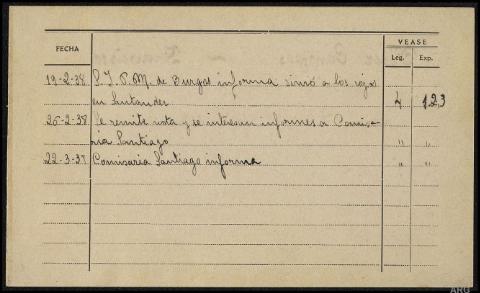 VEASE
FECHA Leg. Exp.
19-2-38 S. I. P. M. de Burgos informa sirvió a los rojos
en Santander 4 123
26-2-38 Se remite nota y se interesan informes a Comisa-
ria Santiago " "
22-3-37 Comisaria Santiago informa " "
ARG